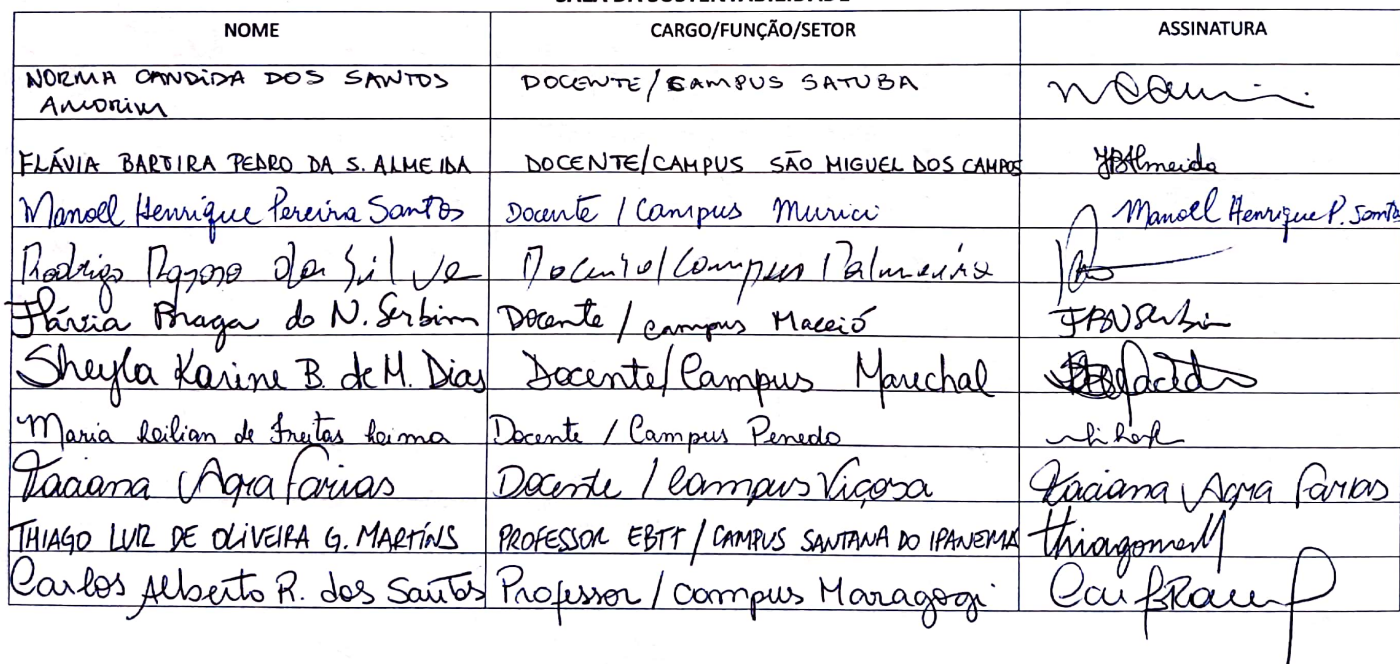 NOME CARGO/FUNÇÃO/SETOR ASSINATURA
NORMA CANDIDA DOS SANTOS DOCENTE/CAMPUS SATUBA
Amorim
FLÁVIA BARTIRA PEDRO DA S. ALMEIDA DOCENTE/CAMPUS SÃO MIGUEL DOS CAMPOS FBAlmeida
Manoel Henrique Pereira Santos Docente / Campus Murici Manoel Henrique P. Santos
Rodrigo da Silva Docente/Campus Palmeira
Flávia Braga do N. Serbim Docente / campus Maceió FBNSerbim
Sheyla Karine B. de M. Dias Docente/Campus Marechal
Maria Leilian de Freitas Leima Docente / Campus Penedo
Taciana Agra Farias Docente / Campus Viçosa Taciana Agra Farias
THIAGO LUIZ DE OLIVEIRA G. MARTÍNS PROFESSOR EBTT / CAMPUS SANTANA DO IPANEMA thiagomarM
Carlos Alberto R. dos Santos Professor / campus Maragogi